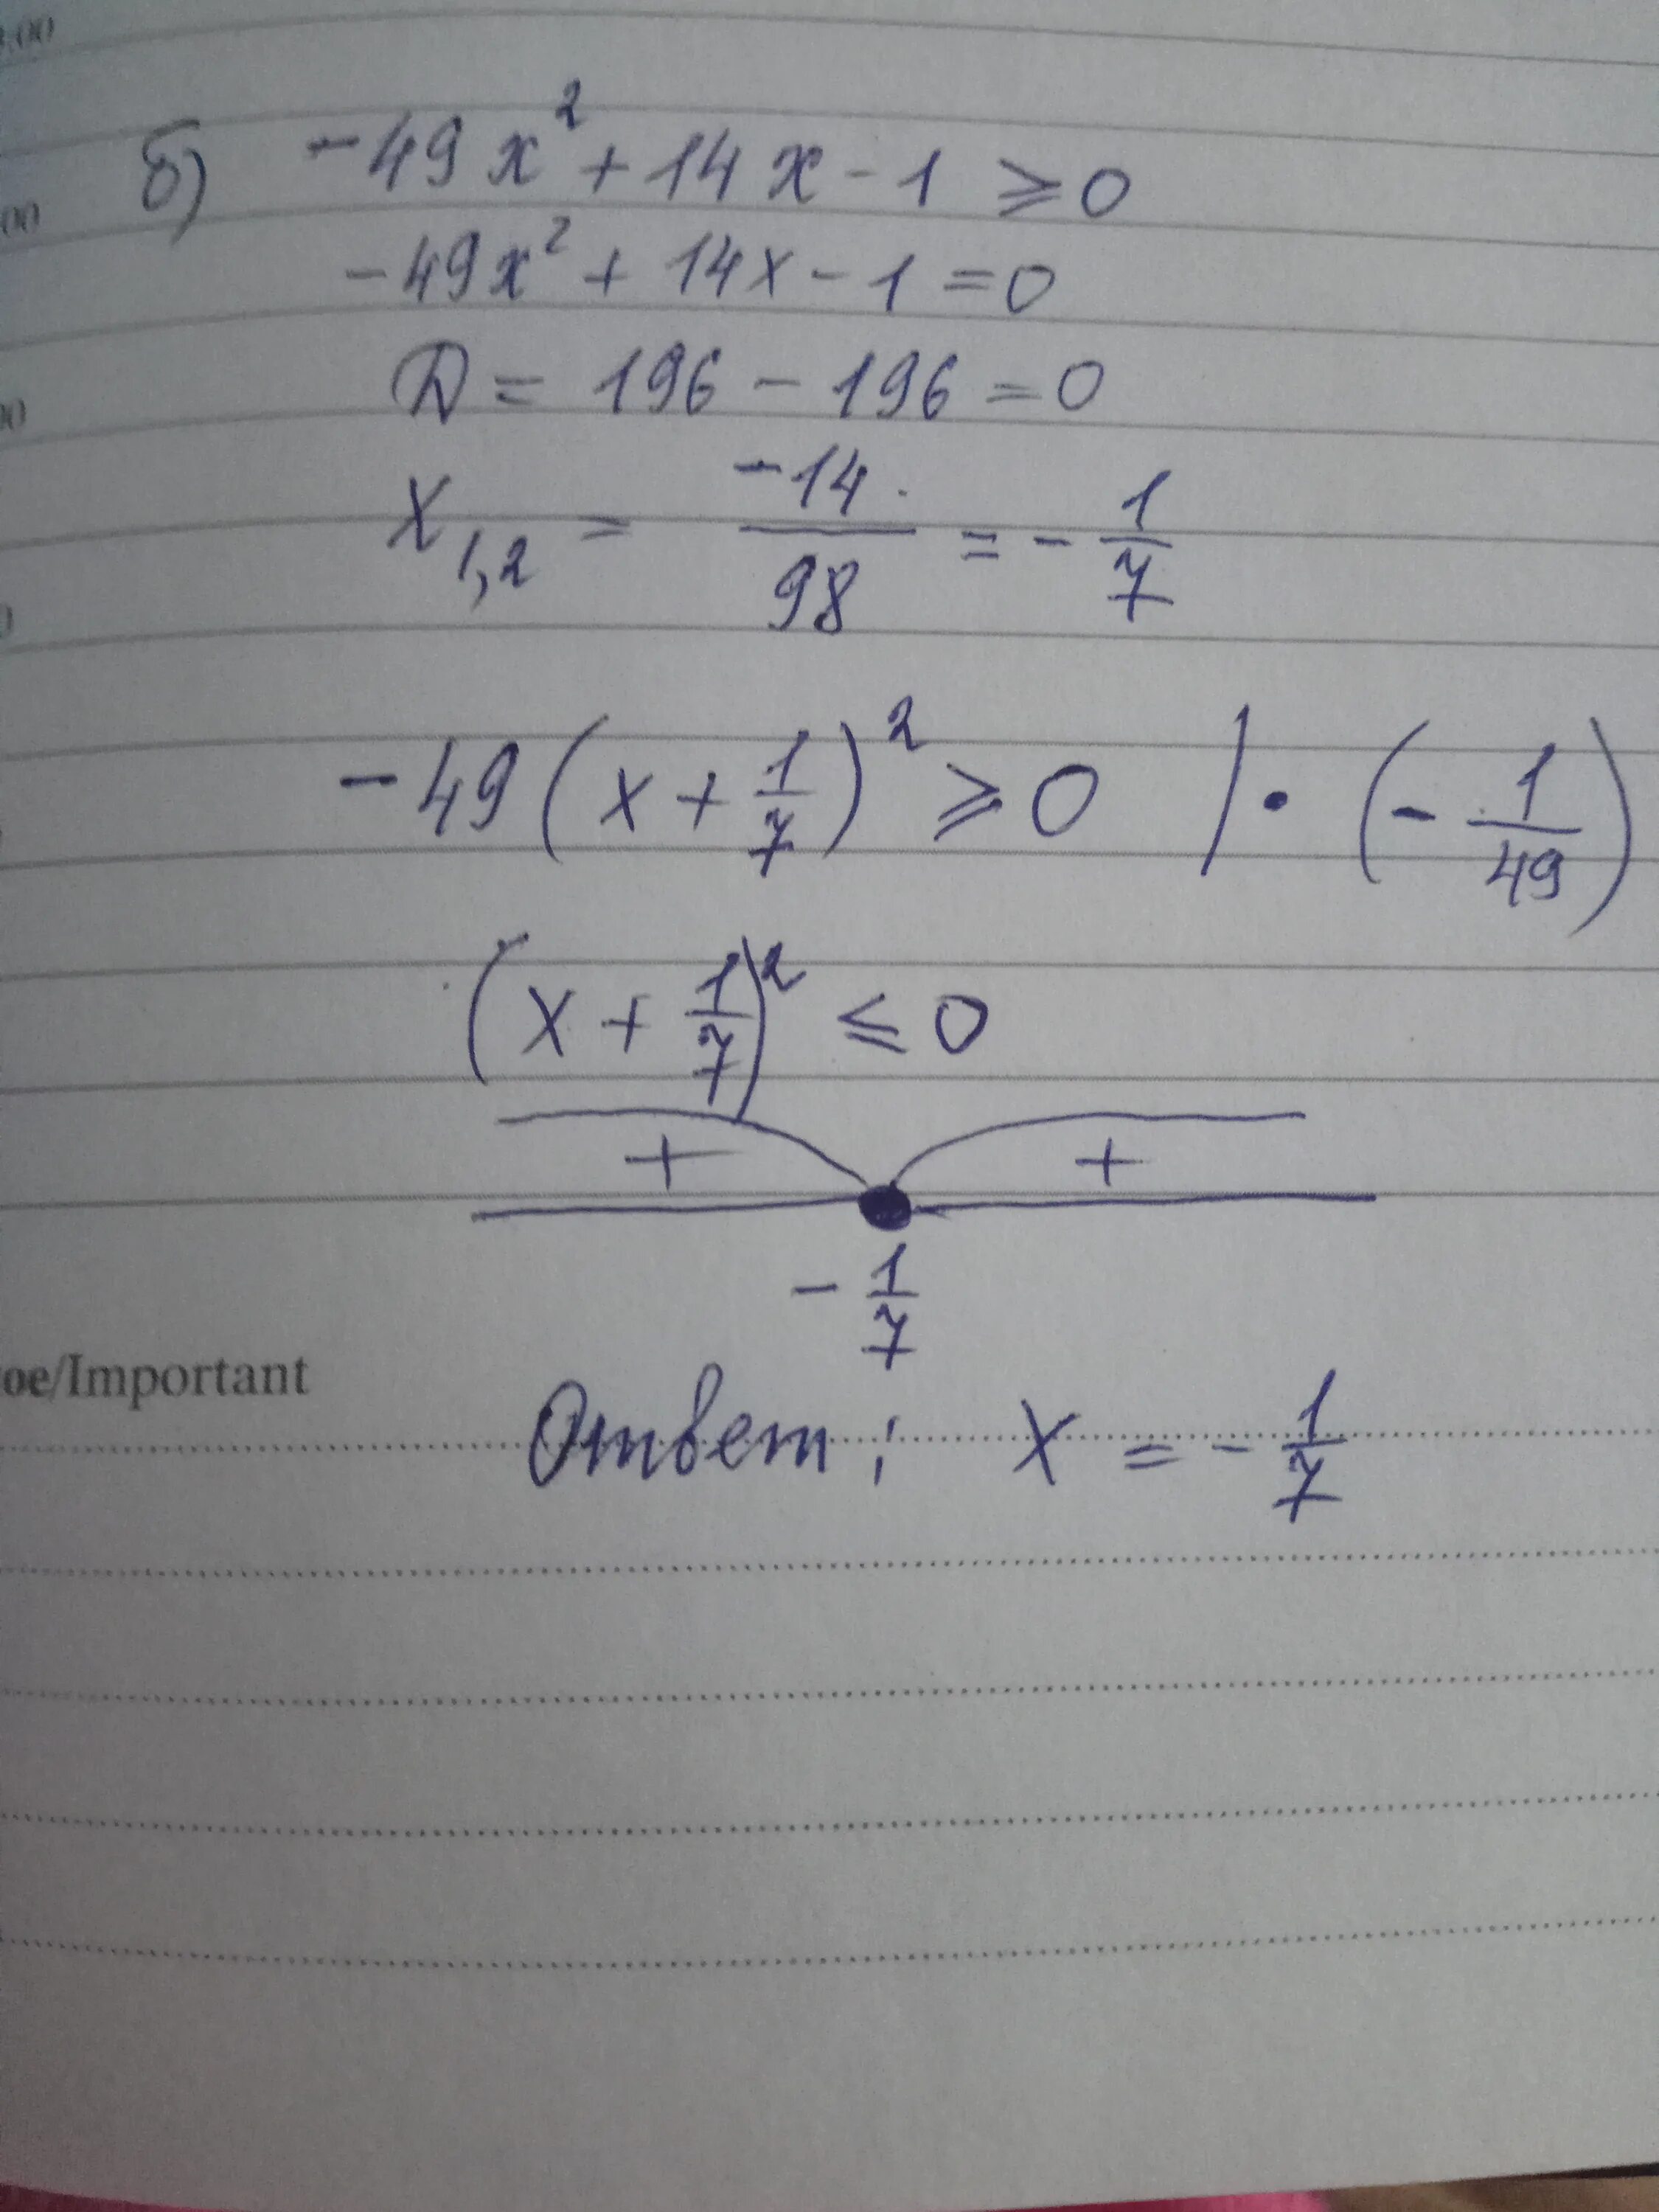 :00
б) -49x² + 14x - 1 ⩾ 0
00
-49x² + 14x - 1 = 0
Д = 196 - 196 = 0
00
x₁,₂ = -14/98 = - 1/7
-49(x + 1/7)² ⩾ 0 | · (- 1/49)
(x + 1/7)² ⩽ 0
+ +
- 1/7
oe/Important
Ответ: x = - 1/7